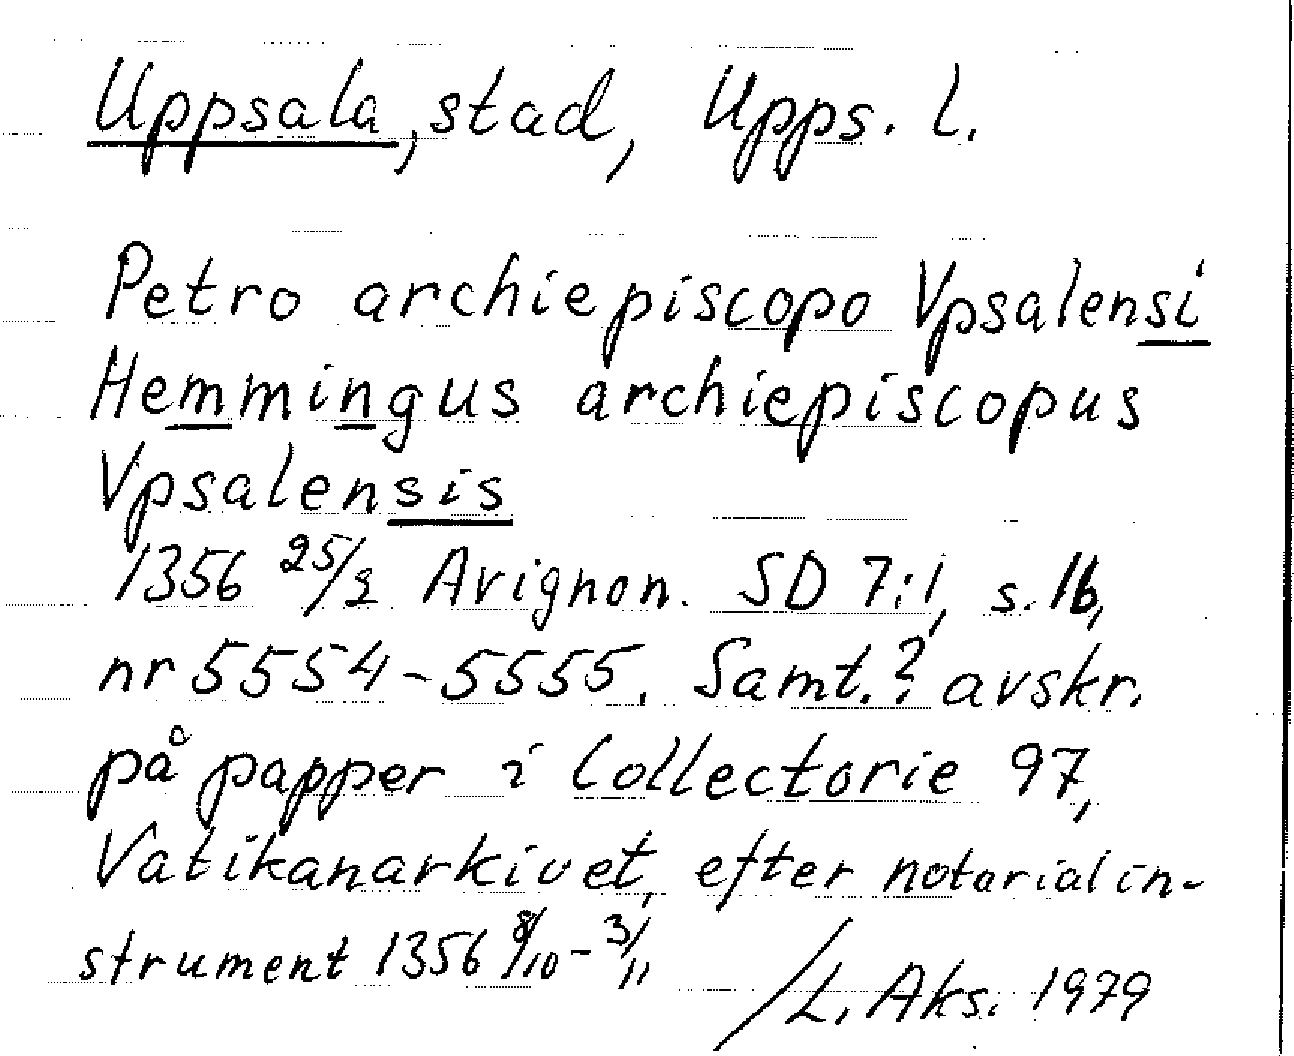 Uppsala, stad, Upps. l.
Petro archiepiscopo Vpsalensi
Hemmingus archiepiscopus
Vpsalensis
1356 25/2 Avignon. SD 7:1, s. 16,
nr 5554-5555. Samt.? avskr.
på papper i Collectorie 97,
Vatikanarkivet, efter notarialin-
strument 1356 8/10 - 3/11
/L. Aks. 1979